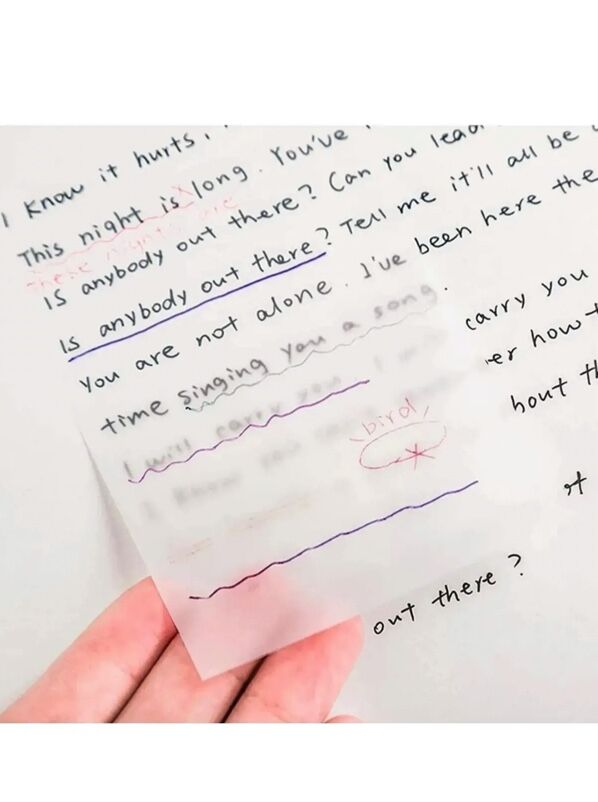 I know it hurts,
This night is long. You've
These nights are
Is anybody out there? Can you lead
Is anybody out there? Tell me it'll all be
You are not alone. I've been here the
time singing you a song.
I will carry you. I carry you
I know you er how t
bird
hout th
out there?